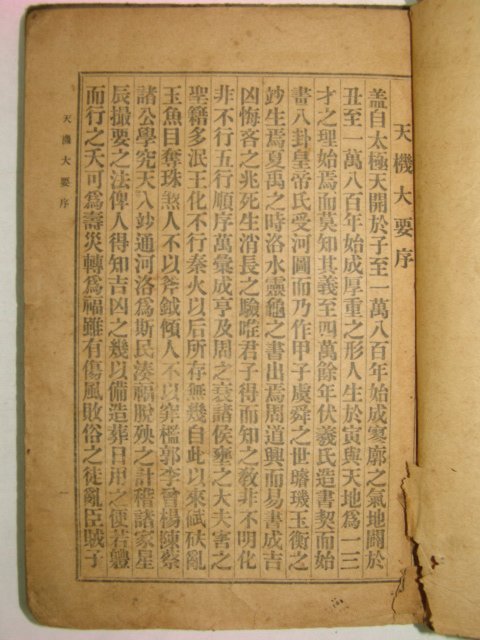 天機大要序
蓋自太極天開於子至一萬八百年始成寥廓之氣地闢於
丑至一萬八百年始成厚重之形人生於寅與天地爲一三
才之理始焉而莫知其義至四萬餘年伏羲氏造書契而始
畫八卦皇帝氏受河圖而乃作甲子虞舜之世璿璣玉衡之
竗生焉夏禹之時洛水靈龜之書出焉周道興而易書成吉
凶悔吝之兆死生消長之驗唯君子得而知之敎非不明化
非不行五行順序萬彙成亨及周之衰諸侯壅之大夫害之
聖籍多泯王化不行秦火以后所存無幾自此以來碔砆亂
玉魚目奪珠煞人不以斧鉞傾人不以穽檻郭李曾楊陳蔡
諸公學究天人竗通河洛爲斯民湊福脫殃之計稽諸家星
辰撮要之法俾人得知吉凶之幾以備造葬日用之便若軆
而行之夭可爲壽災轉爲福雖有傷風敗俗之徒亂臣賊子
天機大要序
一